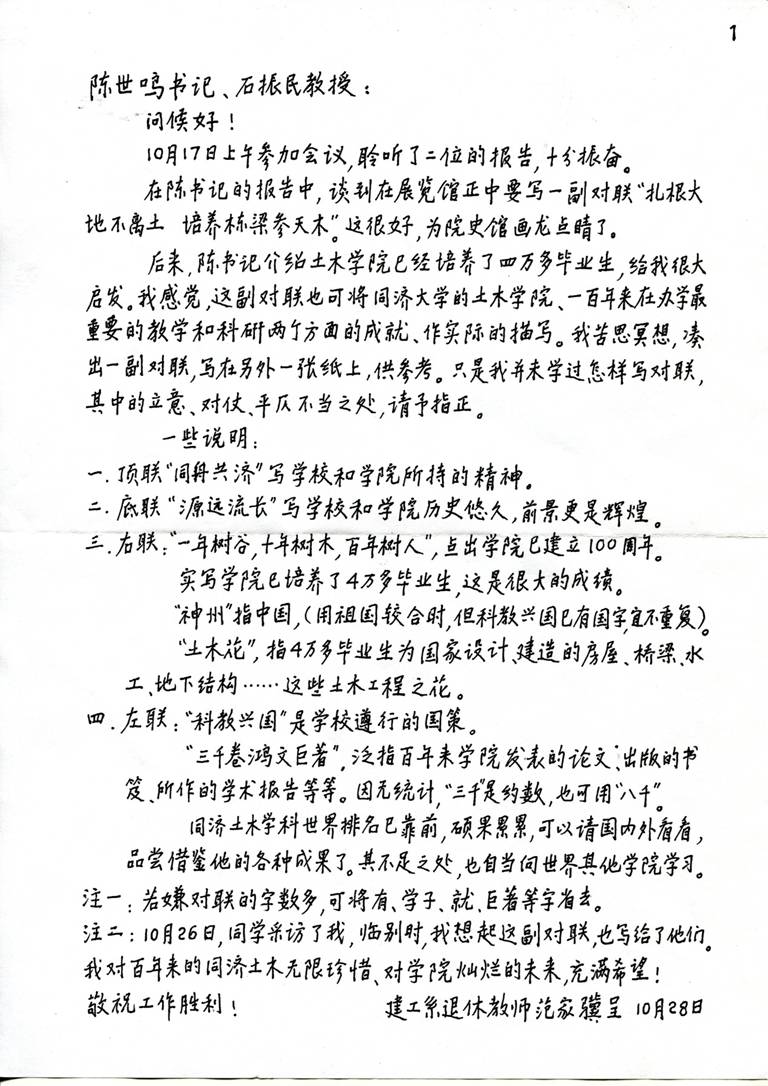 1
陈世鸣书记、石振民教授：
问候好！
10月17日上午参加会议，聆听了二位的报告，十分振奋。
在陈书记的报告中，谈到在展览馆正中要写一副对联“扎根大
地不离土 培养栋梁参天木”。这很好，为院史馆画龙点睛了。
后来，陈书记介绍土木学院已经培养了四万多毕业生，给我很大
启发。我感觉，这副对联也可将同济大学的土木学院、一百年来在办学最
重要的教学和科研两个方面的成就、作实际的描写。我苦思冥想，凑
出一副对联，写在另外一张纸上，供参考。只是我并未学过怎样写对联，
其中的立意、对仗、平仄不当之处，请予指正。
一些说明：
一．顶联“同舟共济”写学校和学院所持的精神。
二．底联“源远流长”写学校和学院历史悠久，前景更是辉煌。
三．右联：“一年树谷，十年树木，百年树人”，点出学院已建立100周年。
实写学院已培养了4万多毕业生，这是很大的成绩。
“神州”指中国，（用祖国较合时，但科教兴国已有国字，宜不重复）。
“土木花”，指4万多毕业生为国家设计、建造的房屋、桥梁、水
工、地下结构……这些土木工程之花。
四．左联：“科教兴国”是学校遵行的国策。
“三千卷鸿文巨著”，泛指百年来学院发表的论文、出版的书
笈、所作的学术报告等等。因无统计，“三千”是约数，也可用“八千”。
同济土木学科世界排名已靠前，硕果累累，可以请国内外看看，
品尝借鉴他的各种成果了。其不足之处，也自当向世界其他学院学习。
注一：若嫌对联的字数多，可将有、学子、就、巨著等字省去。
注二：10月26日，同学采访了我，临别时，我想起这副对联，也写给了他们。
我对百年来的同济土木无限珍惜、对学院灿烂的未来，充满希望！
敬祝工作胜利！ 建工系退休教师范家骥呈 10月28日